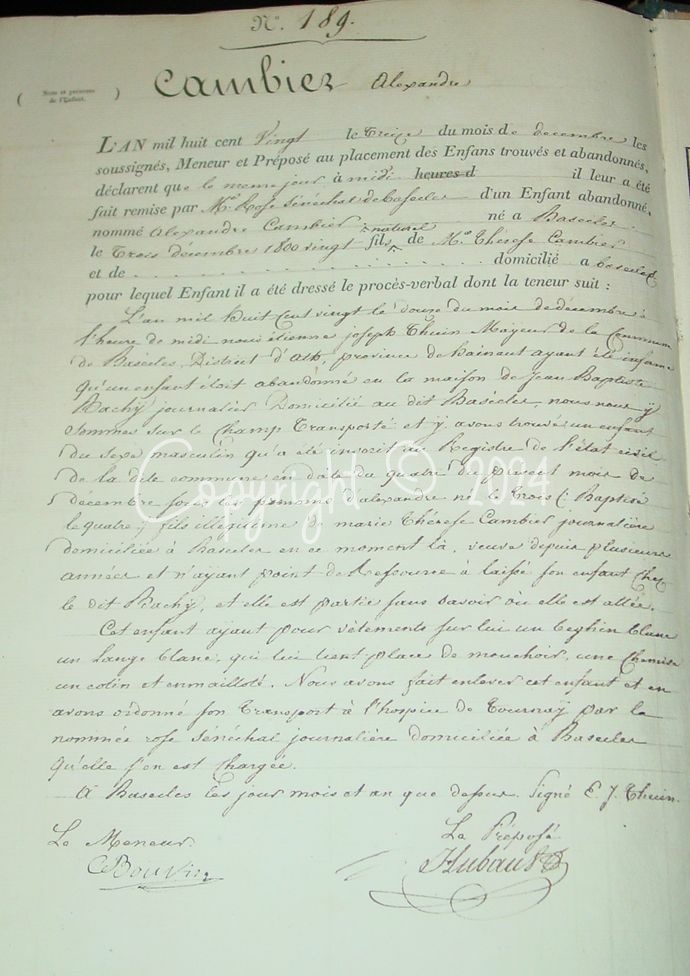 N.º 189.
( Nom et prénoms
de l'Enfant. )
Cambier Alexandre
L'AN mil huit cent Vingt le treize du mois de decembre les
soussignés, Meneur et Préposé au placement des Enfans trouvés et abandonnés,
déclarent que le meme jour à midi heures d il leur a été
fait remise par M.e Rose Sénéchal de Basecles d'un Enfant abandonné,
nommé Alexandre Cambier né a Basecles
le Trois décembre 1800 vingt fils naturel de M.e Thérese Cambier
et de . . . . . . . . . . domicilié a basecles
pour lequel Enfant il a été dressé le procès-verbal dont la teneur suit :
L'an mil huit Cent vingt le douze du mois de decembre à
l'heure de midi nous etienne joseph Thuin Mayeur de la Commune
de Basecles, District d'Ath, province de hainaut ayant été informé
qu'un enfant étoit abandonné en la maison de Jean Baptiste
Rachy journalier Domicilié au dit Basecles, nous nous y
sommes sur le Champ Transporté et y avons trouvé un enfant
du sexe masculin qu'a eté inscrit au Registre de l'état civil
de la dite commune en date du quatre du présent mois de
décembre sous les prenoms d'alexandre né le trois (: Baptisé
le quatre) fils illégitime de marie Thérese Cambier journalière
domiciliée à Basecles en ce moment là, veuve depuis plusieurs
années et n'ayant point de Ressource à laissé son enfant chez
le dit Rachy, et elle est partie sans savoir où elle est allée.
Cet enfant ayant pour vêtements sur lui un beghin blanc
un lange blanc, qui lui tient place de mouchoir, une Chemise
un colin et enmailloté. Nous avons fait enlever cet enfant et en
avons ordonné son Transport à l'hospice de Tournay par la
nommée rose Sénéchal journalière domiciliée à Basecles
qu'elle s'en est Chargée.
A Basecles les jour mois et an que dessus. Signé E. J. Thuin.
Le Meneur. Le Préposé
C Bouvin Hubault
Copyright © 2024